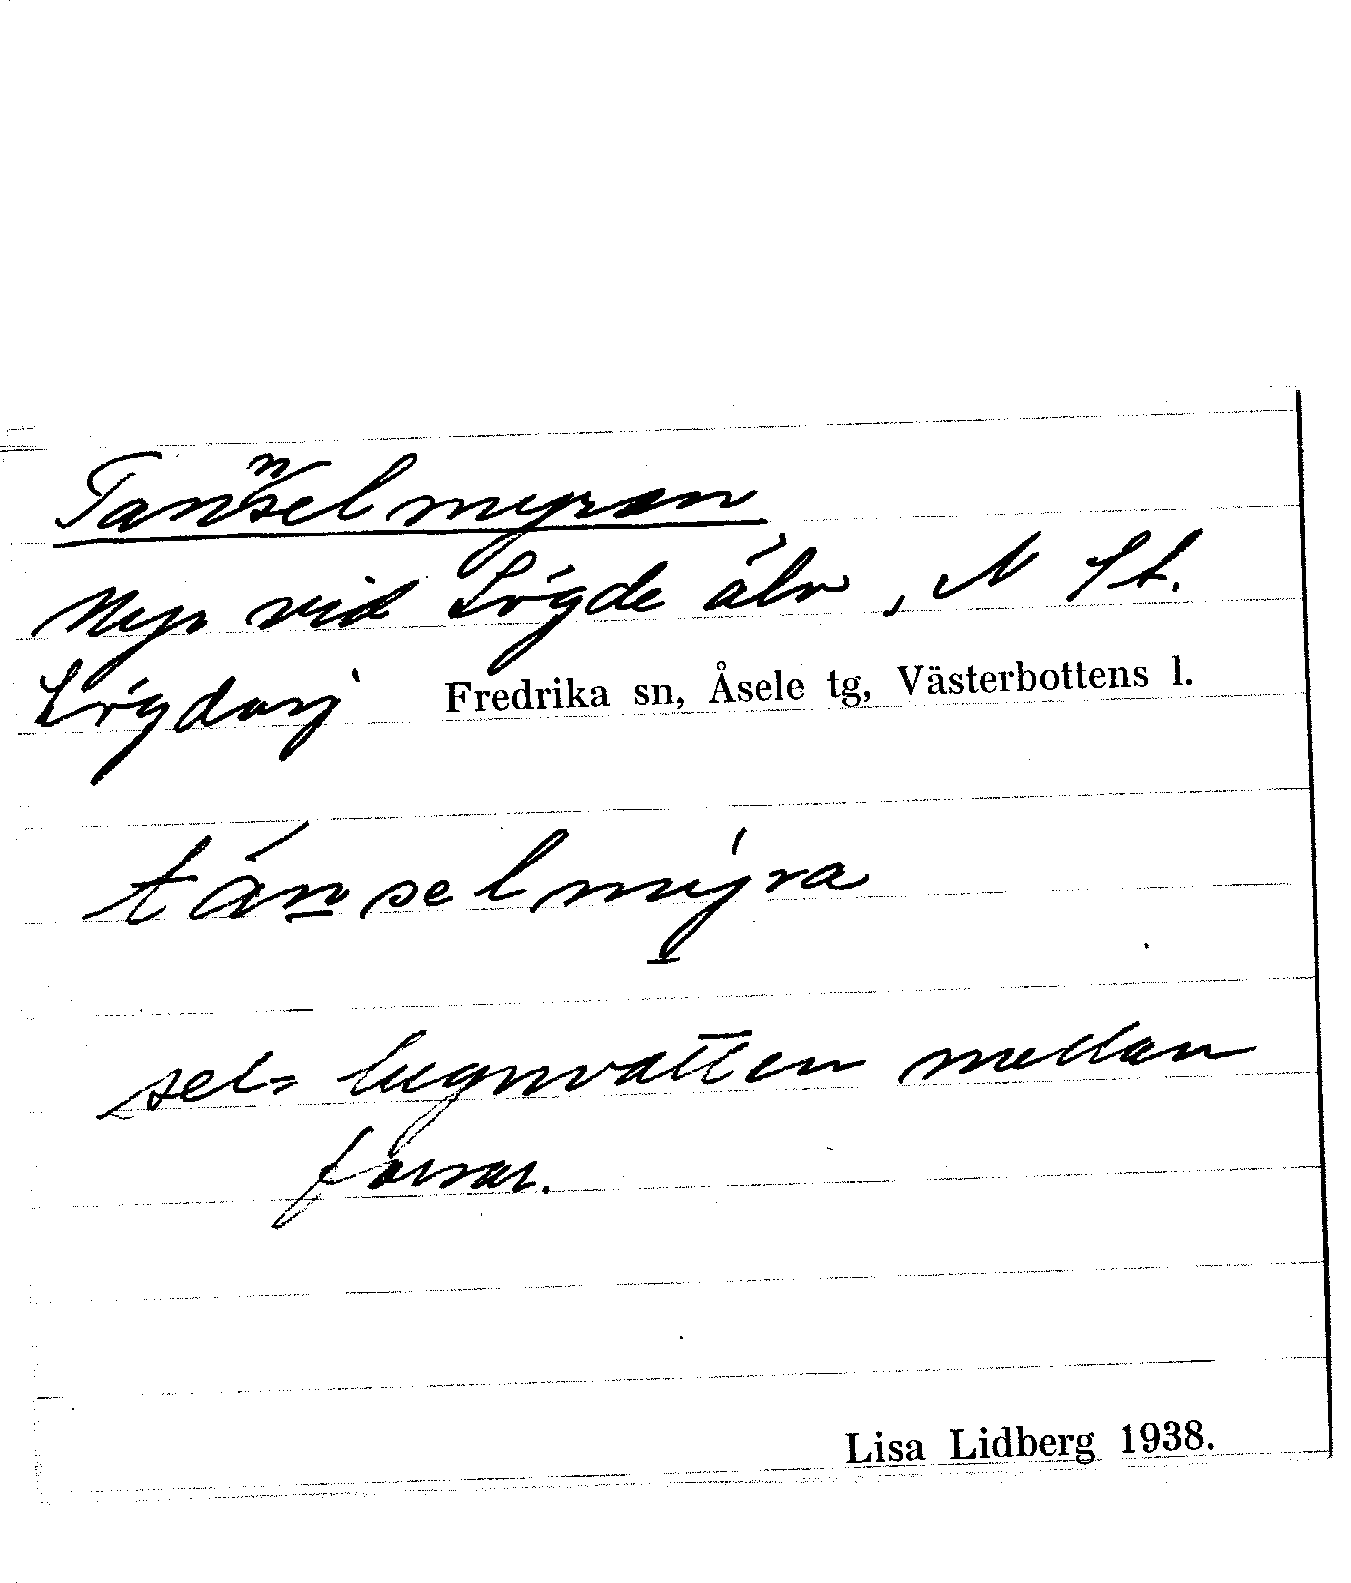 Tannselmyran
Myr vid Lögde älv, N St.
Lögdasj Fredrika sn, Åsele tg, Västerbottens l.
tánselmýra
sel = lugnvatten mellan
forsar.
Lisa Lidberg 1938.